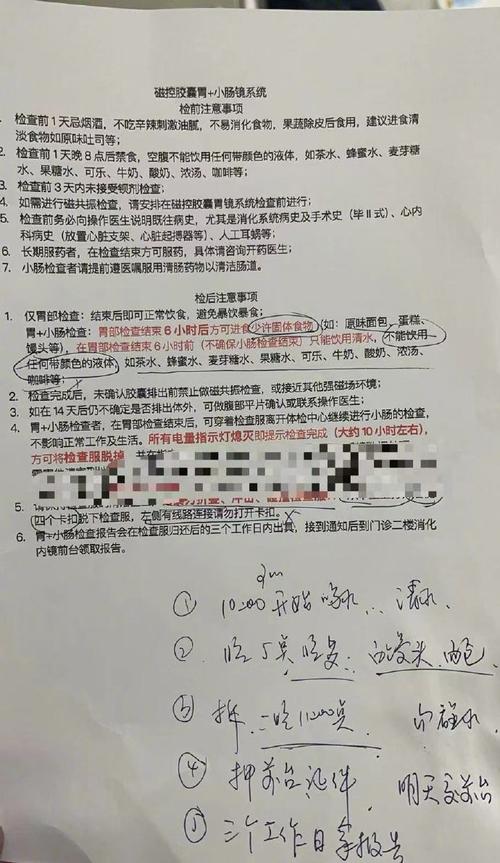 磁控胶囊胃+小肠镜系统
检前注意事项
1. 检查前1天忌烟酒，不吃辛辣刺激油腻，不易消化食物，果蔬除皮后食用，建议进食清
淡食物如原味吐司等；
2. 检查前1天晚8点后禁食，空腹不能饮用任何带颜色的液体，如茶水、蜂蜜水、麦芽糖
水、果糖水、可乐、牛奶、酸奶、浓汤、咖啡等；
3. 检查前3天内未接受钡剂检查；
4. 如需进行磁共振检查，请安排在磁控胶囊胃镜系统检查前进行；
5. 检查前务必向操作医生说明既往病史，尤其是消化系统病史及手术史（毕II式）、心内
科病史（放置心脏支架、心脏起搏器等）、人工耳蜗等；
6. 长期服药者，在检查结束方可服药，具体请咨询开药医生；
7. 小肠检查者请提前遵医嘱服用清肠药物以清洁肠道。
检后注意事项
1. 仅胃部检查：结束后即可正常饮食，避免暴饮暴食；
胃+小肠检查：胃部检查结束6小时后方可进食少许固体食物（如：原味面包，蛋糕、
馒头等），在胃部检查结束6小时前（不确保小肠检查结束）只能饮用清水，不能饮用
任何带颜色的液体，如茶水、蜂蜜水、麦芽糖水、果糖水、可乐、牛奶、酸奶、浓汤、
咖啡等；
2. 检查完成后，未确认胶囊排出前禁止做磁共振检查，或接近其他强磁场环境；
3. 如在14天后仍不确定是否排出体外，可做腹部平片确认或联系操作医生；
4. 胃+小肠检查者，在胃部检查结束后，可穿着检查服离开体检中心继续进行小肠的检查，
不影响正常工作及生活。所有电量指示灯熄灭即提示检查完成（大约10小时左右），
方可将检查服脱掉
5.
四个卡扣脱下检查服，左侧有线路连接请勿打开卡扣。
6. 胃+小肠检查报告会在检查服归还后的三个工作日内出具，接到通知后到门诊二楼消化
内镜前台领取报告。
① 10:00开始喝水 清水
② 晚5点 晚多 白馒头 面包
③ 拆 晚11:00点
④ 押前台证件 明天交前台
⑤ 三个工作日拿报告